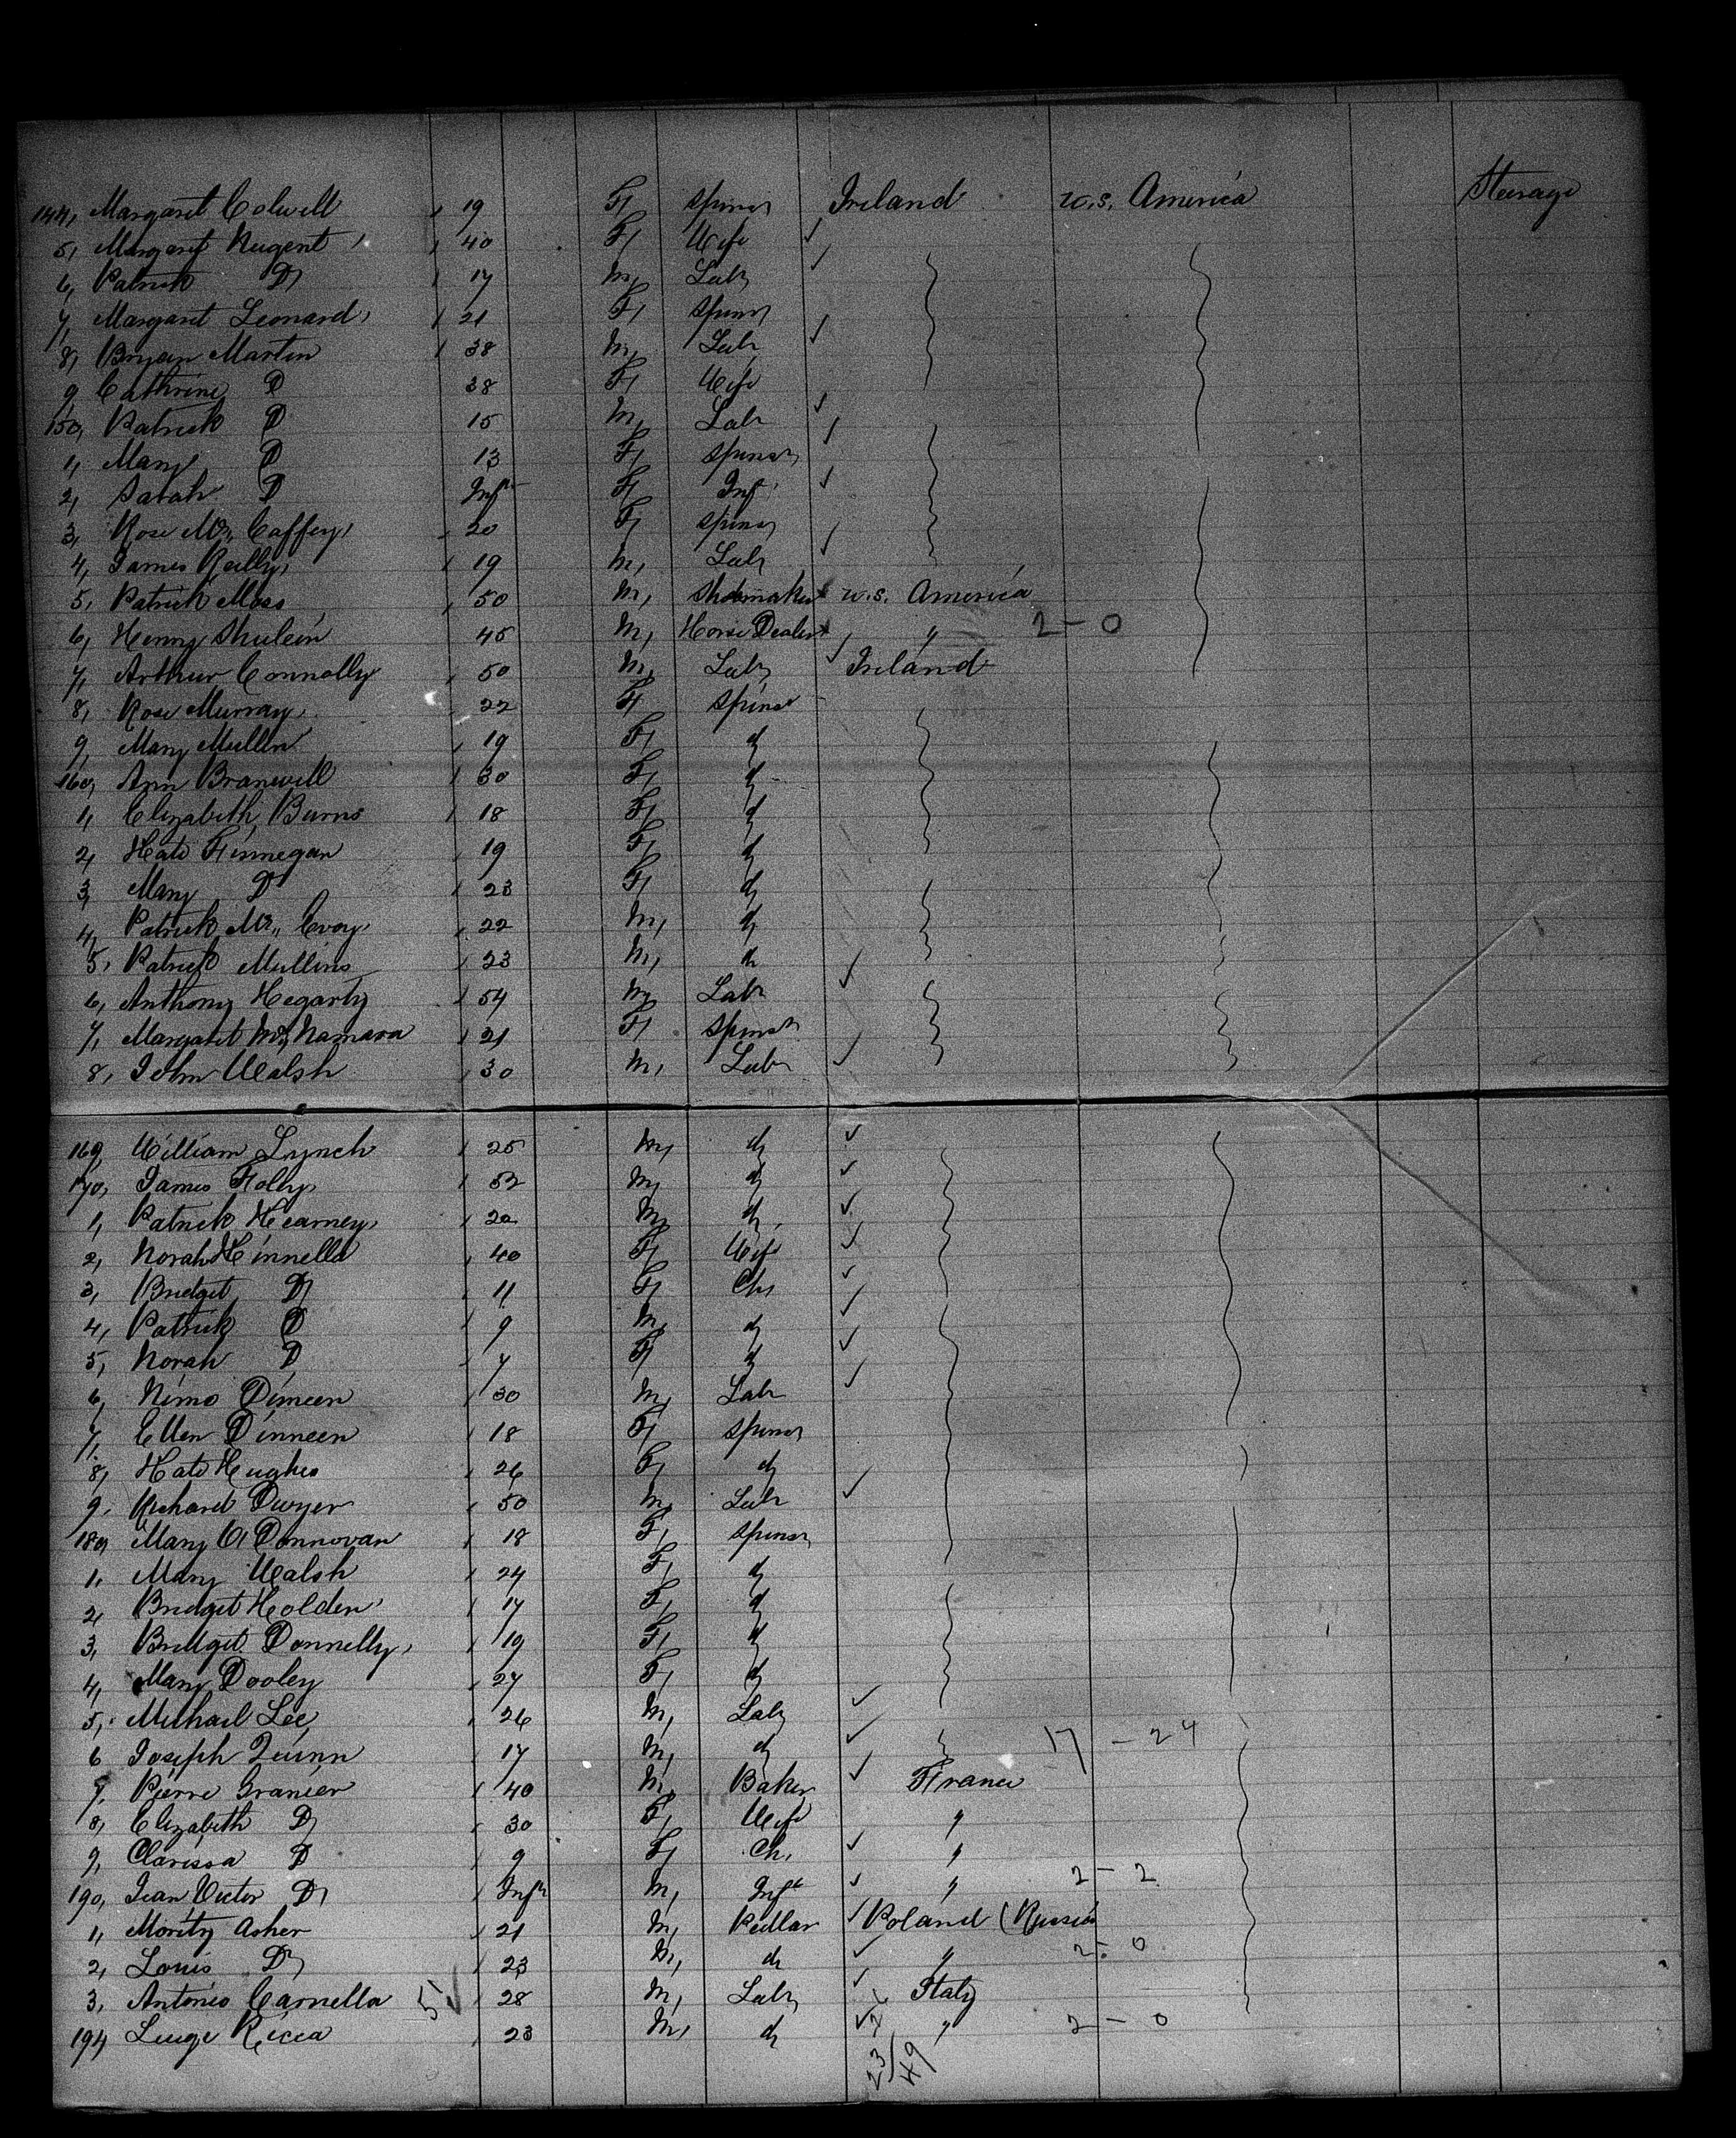 144, Margaret Colwell 19 F, Spinsr Ireland U.S. America Steerage
5, Margaret Nugent 40 F, Wife
6, Patrick D, 17 M, Labr
7, Margaret Leonard 21 F, Spinsr
8, Bryan Martin 38 M, Labr
9 Cathrine D 38 F, Wife
150, Patrick D 15 M, Labr
1, Mary D 13 F, Spinsr
2, Sarah D Inft F, Inft
3, Rose Mc,, Caffery, 20 F, Spinsr
4, James Reilly, 19 M, Labr
5, Patrick Moss 50 M, Shoemaker U.S. America
6, Henry Shulein 45 M, Horse Dealer " 2 - 0
7, Arthur Connolly 50 M, Labr Ireland
8, Rose Murray, 22 F, Spinsr
9, Mary Mullen 19 F, d,
160, Ann Branwell 30 F, d,
1, Elizabeth Burns 18 F, d,
2, Kate Finnegan 19 F, d,
3, Mary D 23 F, d,
4, Patrick Mc,, Evoy, 22 M, d,
5, Patrick Mullins 23 M, d,
6, Anthony Hegarty 54 M, Labr
7, Margaret Mc, Namara 21 F, Spinsr
8, John Walsh 30 M, Labr
169, William Lynch 25 M, d,
170, James Foley, 52 M, d,
1, Patrick Kearney, 20 M, d,
2, Norah Kinnella 40 F, Wife
3, Bridget D, 11 F, Ch,
4, Patrick D 9 M, d,
5, Norah D 7 F, d,
6, Dimeen 30 M, Labr
7, Ellen Dinneen 18 F, Spinsr
8, Kate Hughes 26 F, d,
9, Richard Dwyer 50 M, Labr
180, Mary O'Donnovan 18 F, Spinsr
1, Mary Walsh 24 F, d,
2, Bridget Holden 17 F, d,
3, Bridget Donnelly, 19 F, d,
4, Mary Dooley 27 F, d,
5, Michael Lee, 26 M, Labr
6 Joseph Quinn 17 M, d, 17 - 24
7, Pierre Granier 40 M, Baker France
8, Elizabeth D, 30 F, Wife "
9, Clarissa D 9 F, Ch, "
190, Jean Victor D, Inft M, Inft " 2 - 2
1, Moritz Asher 21 M, Pedlar Poland (Russia
2, Louis D, 23 M, d, " 2 - 0
3, Antonio Carnella 51 28 M, Labr Italy
194 Luigi Ricca 23 M, d, " 2 - 0
23/49